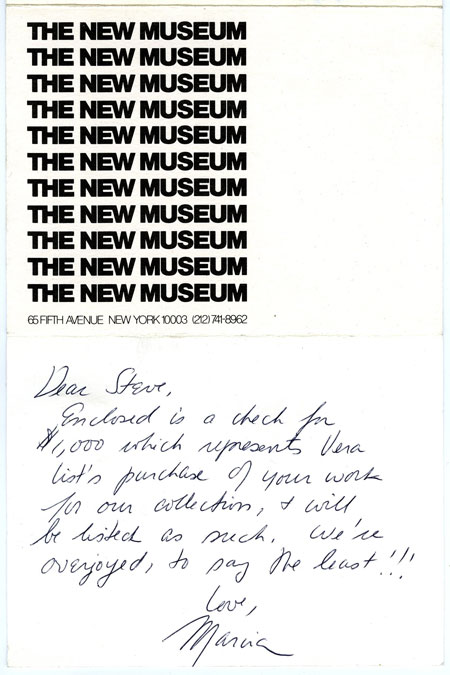 THE NEW MUSEUM
THE NEW MUSEUM
THE NEW MUSEUM
THE NEW MUSEUM
THE NEW MUSEUM
THE NEW MUSEUM
THE NEW MUSEUM
THE NEW MUSEUM
THE NEW MUSEUM
THE NEW MUSEUM
THE NEW MUSEUM
65 FIFTH AVENUE NEW YORK 10003 (212) 741-8962
Dear Steve,
Enclosed is a check for
$1,000 which represents Vera
List's purchase of your work
for our collection, & will
be listed as such. We're
overjoyed, to say the least!!!
Love,
Marcia